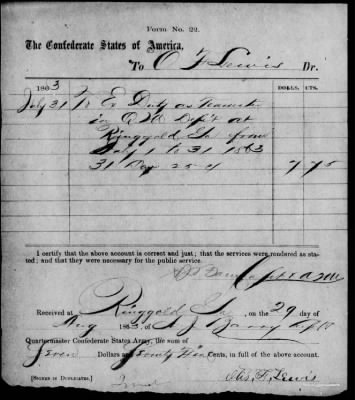 Form No. 22.
The Confederate States of America,
To O F Lewis Dr.
1863 DOLLS. CTS.
July 31 Ex Duty as Teamster
in QM Dept at
Ringgold Ga from
July 1 to 31 1863
31 Days 25 c 7 75
I certify that the above account is correct and just; that the services were rendered as sta-
ted; and that they were necessary for the public service.
Capt & AQM
Received at Ringgold Ga, on the 29 day of
Aug 1863, of
Quartermaster Confederate States Army, the sum of
Seven Dollars and Seventy Five Cents, in full of the above account.
[SIGNED IN DUPLICATES.] Otis F. Lewis